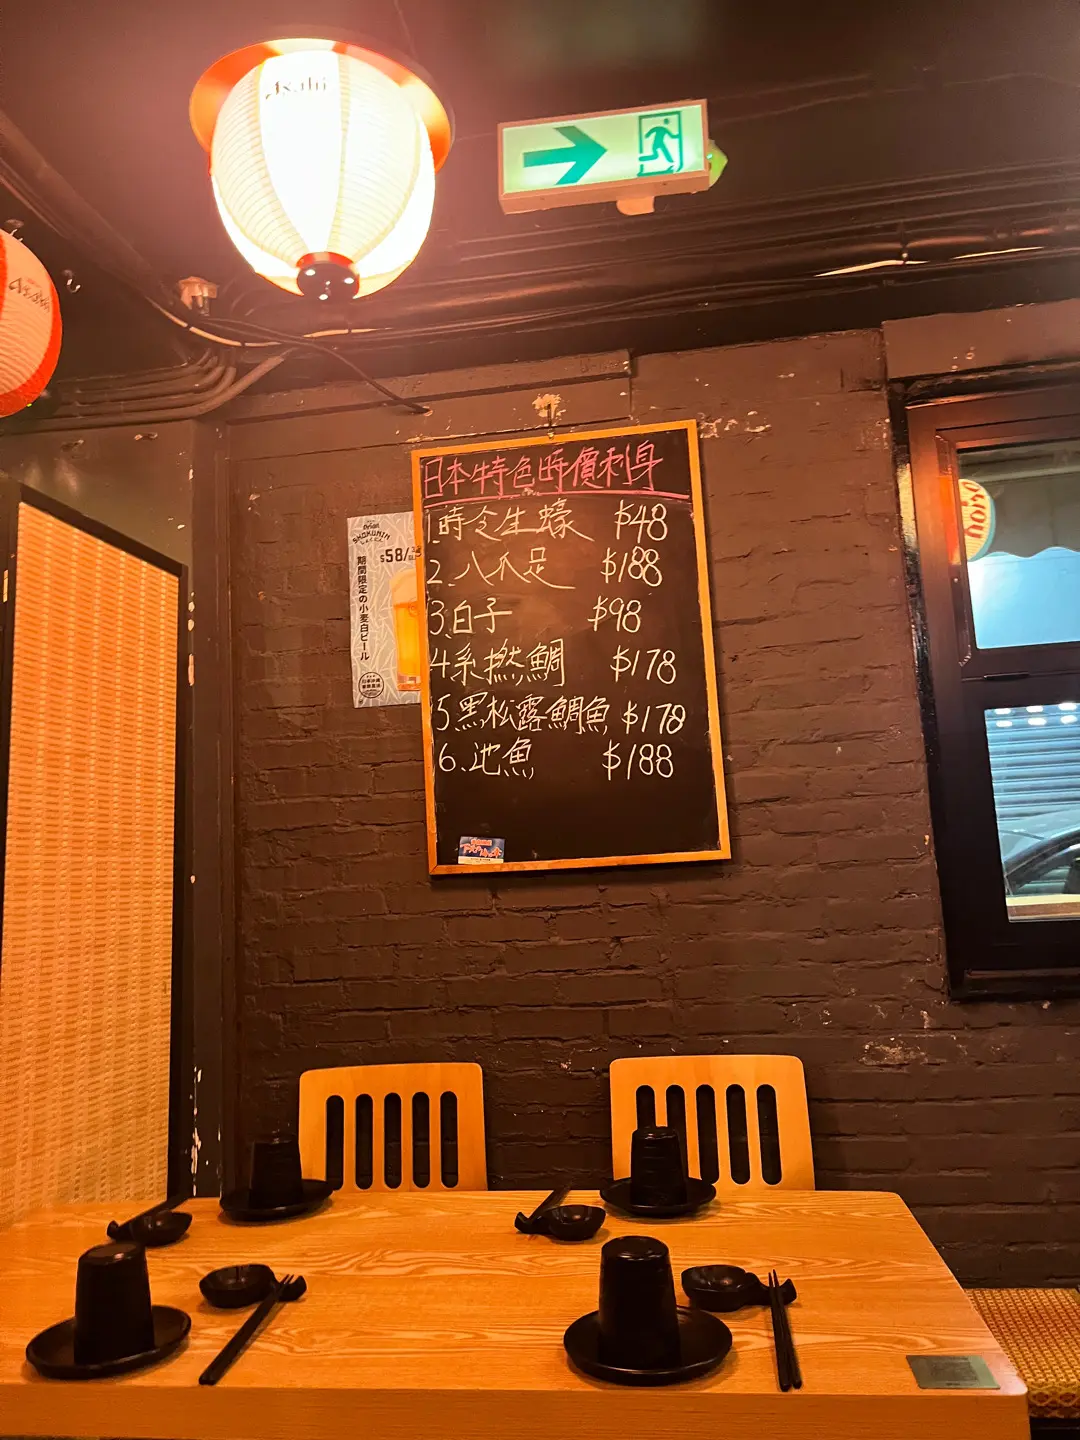 Asahi
Asahi
日本特色時價刺身
1.時令生蠔 $48
2.八爪足 $188
3.白子 $98
4.系撚鯛 $178
5.黑松露鯛魚 $178
6.池魚 $188
Orion
SHOKUNIN
$58/
期間限定の小麦白ビール
Orion